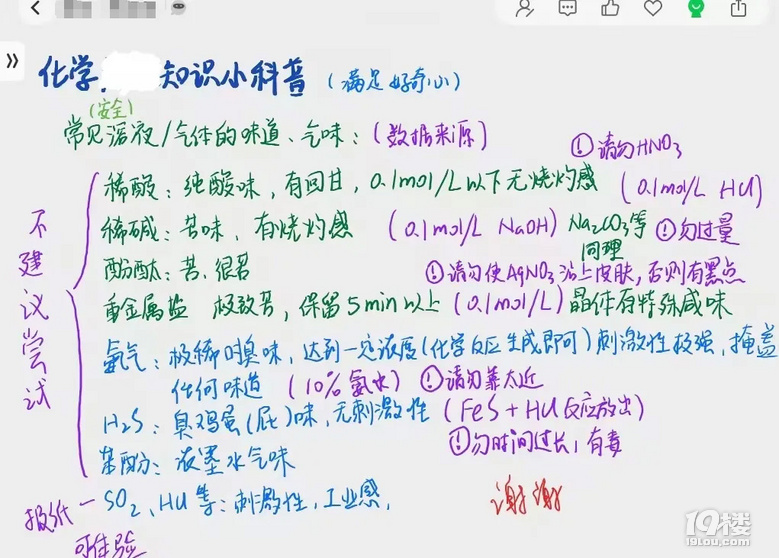 化学 知识小科普 (满足好奇心)
(安全)
常见溶液/气体的味道、气味:(数据来源)
!请勿HNO₃
稀酸:纯酸味,有回甘,0.1mol/L以下无烧灼感 (0.1mol/L HCl)
稀碱:苦味,有烧灼感 (0.1mol/L NaOH) Na₂CO₃等同理 !勿过量
酚酞:苦、很苦 !请勿使AgNO₃沾上皮肤,否则有黑点
重金属盐 极致苦,保留5min以上 (0.1mol/L) 晶体有特殊咸味
氨气:极稀时臭味,达到一定浓度(化学反应生成即可)刺激性极强,掩盖
任何味道 (10%氨水) !请勿靠太近
H₂S:臭鸡蛋(屁)味,无刺激性 (FeS+HCl反应放出)
!勿时间过长,有毒
苯酚:液墨水气味
SO₂、HCl等:刺激性,工业感,
不建议尝试
谢谢
19楼
19lou.com